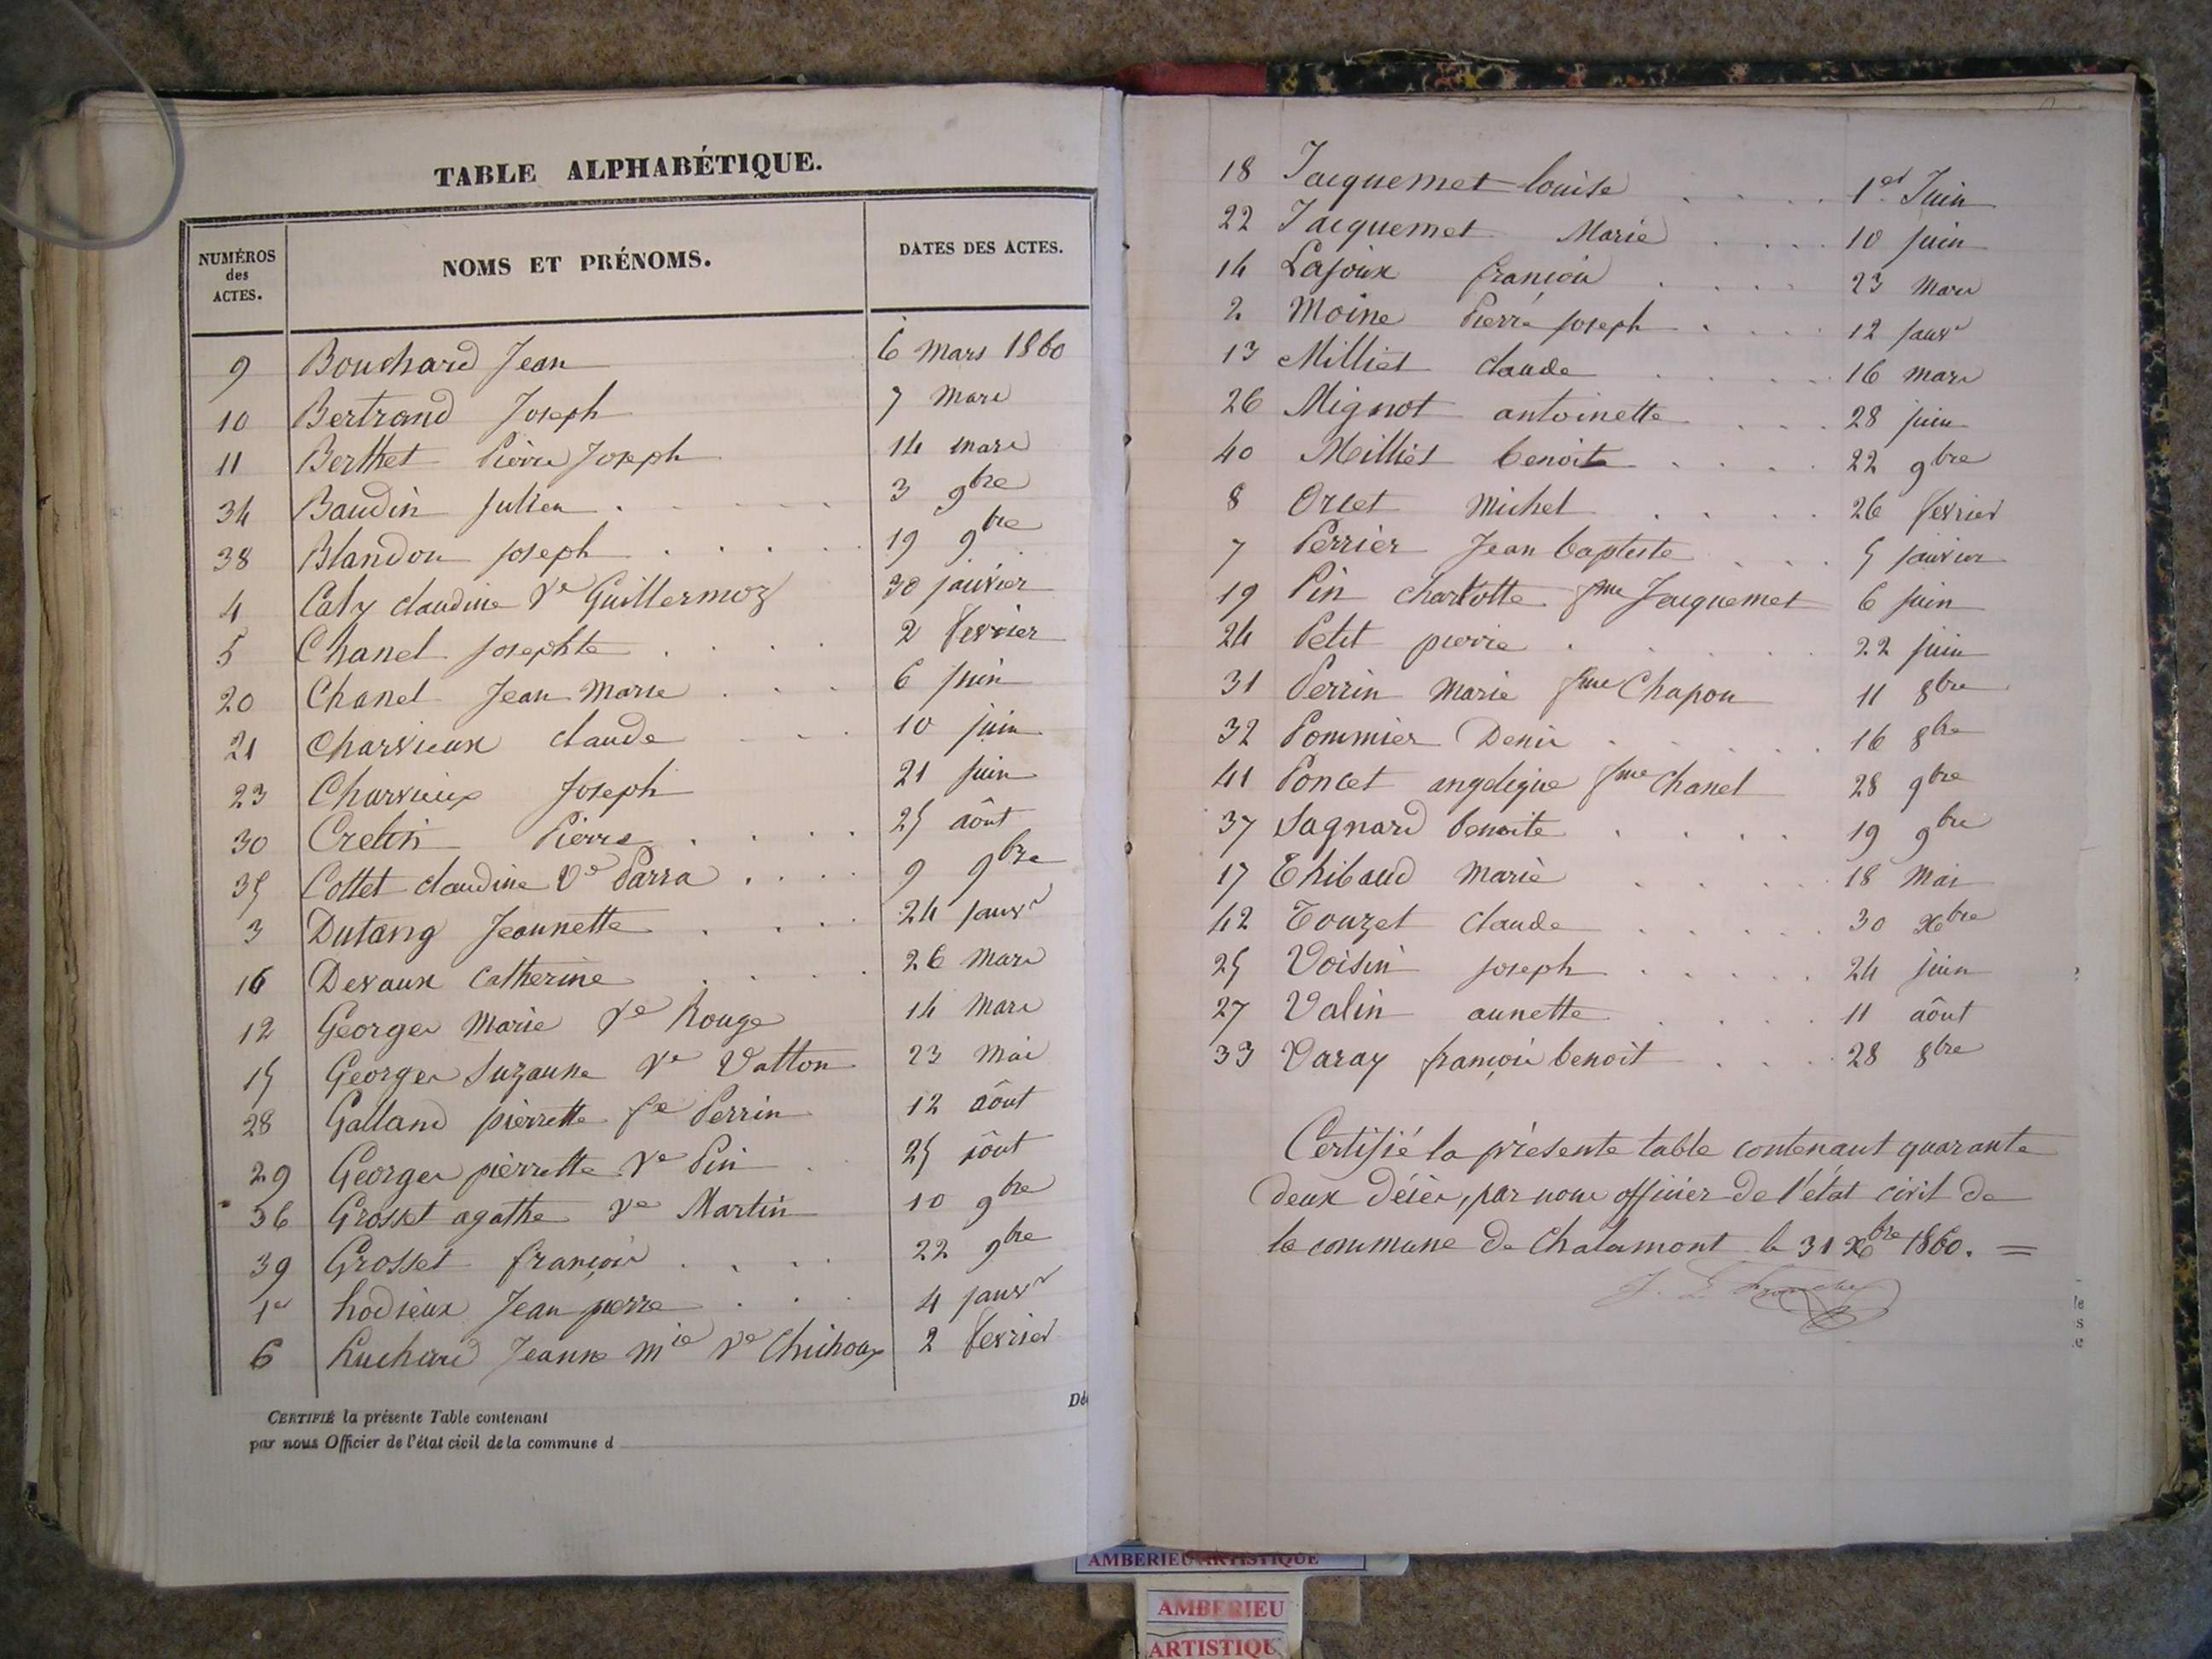 TABLE ALPHABÉTIQUE.
NUMÉROS des ACTES. NOMS ET PRÉNOMS. DATES DES ACTES.
9 Bouchard Jean 6 mars 1860
10 Bertrand Joseph 7 mars
11 Berthet Pierre Joseph 14 mars
34 Baudin julien 3 9bre
38 Blandon joseph 19 9bre
4 Caty claudine Ve Guillermoz 30 janvier
5 Chanel josephte 2 fevrier
20 Chanel Jean Marie 6 juin
21 Charvieux claude 10 juin
23 Charvieux Joseph 21 juin
30 Cretin Pierre 25 aôut
35 Cottet claudine Ve Parra 9 9bre
3 Dutang Jeannette 24 janvr
16 Devaux Catherine 26 mars
12 Georges Marie Ve Rouge 14 mars
15 Georges Suzanne Ve Vatton 23 mai
28 Galland pierrette fe Perrin 12 aôut
29 Georges pierrette Ve Pin 25 aôut
36 Grosset agathe Ve Martin 10 9bre
39 Grosset françois 22 9bre
1er hodieux Jean pierre 4 janvr
6 Jeanne mie Ve 2 fevrier
CERTIFIÉ la présente Table contenant Dé
par nous Officier de l'état civil de la commune d
18 Jacquemet louise 1er Juin
22 Jacquemet Marie 10 juin
14 Lajoux françois 23 mars
2 Moine Pierre joseph 12 janvr
13 Milliet claude 16 mars
26 Mignot antoinette 28 juin
40 Milliet benoite 22 9bre
8 Orcet Michel 26 fevrier
7 Perrier Jean baptiste 5 janvier
19 Pin charlotte fme Jacquemet 6 juin
24 Petit pierre 22 juin
31 Perrin Marie fme Chapon 11 8bre
32 Pommier Denis 16 8bre
41 Poncet angelique fme Chanel 28 9bre
37 Sagnard benoite 19 9bre
17 Thibaud Marie 18 Mai
42 Touzet claude 30 Xbre
25 Voisin joseph 24 juin
27 Valin annette 11 aôut
33 Varay françois benoit 28 8bre
Certifié la présente table contenant quarante
deux décès, par nous officier de l'état civil de
la commune de Chalamont le 31 Xbre 1860. =
AMBERIEU ARTISTIQUE
AMBERIEU
ARTISTIQU